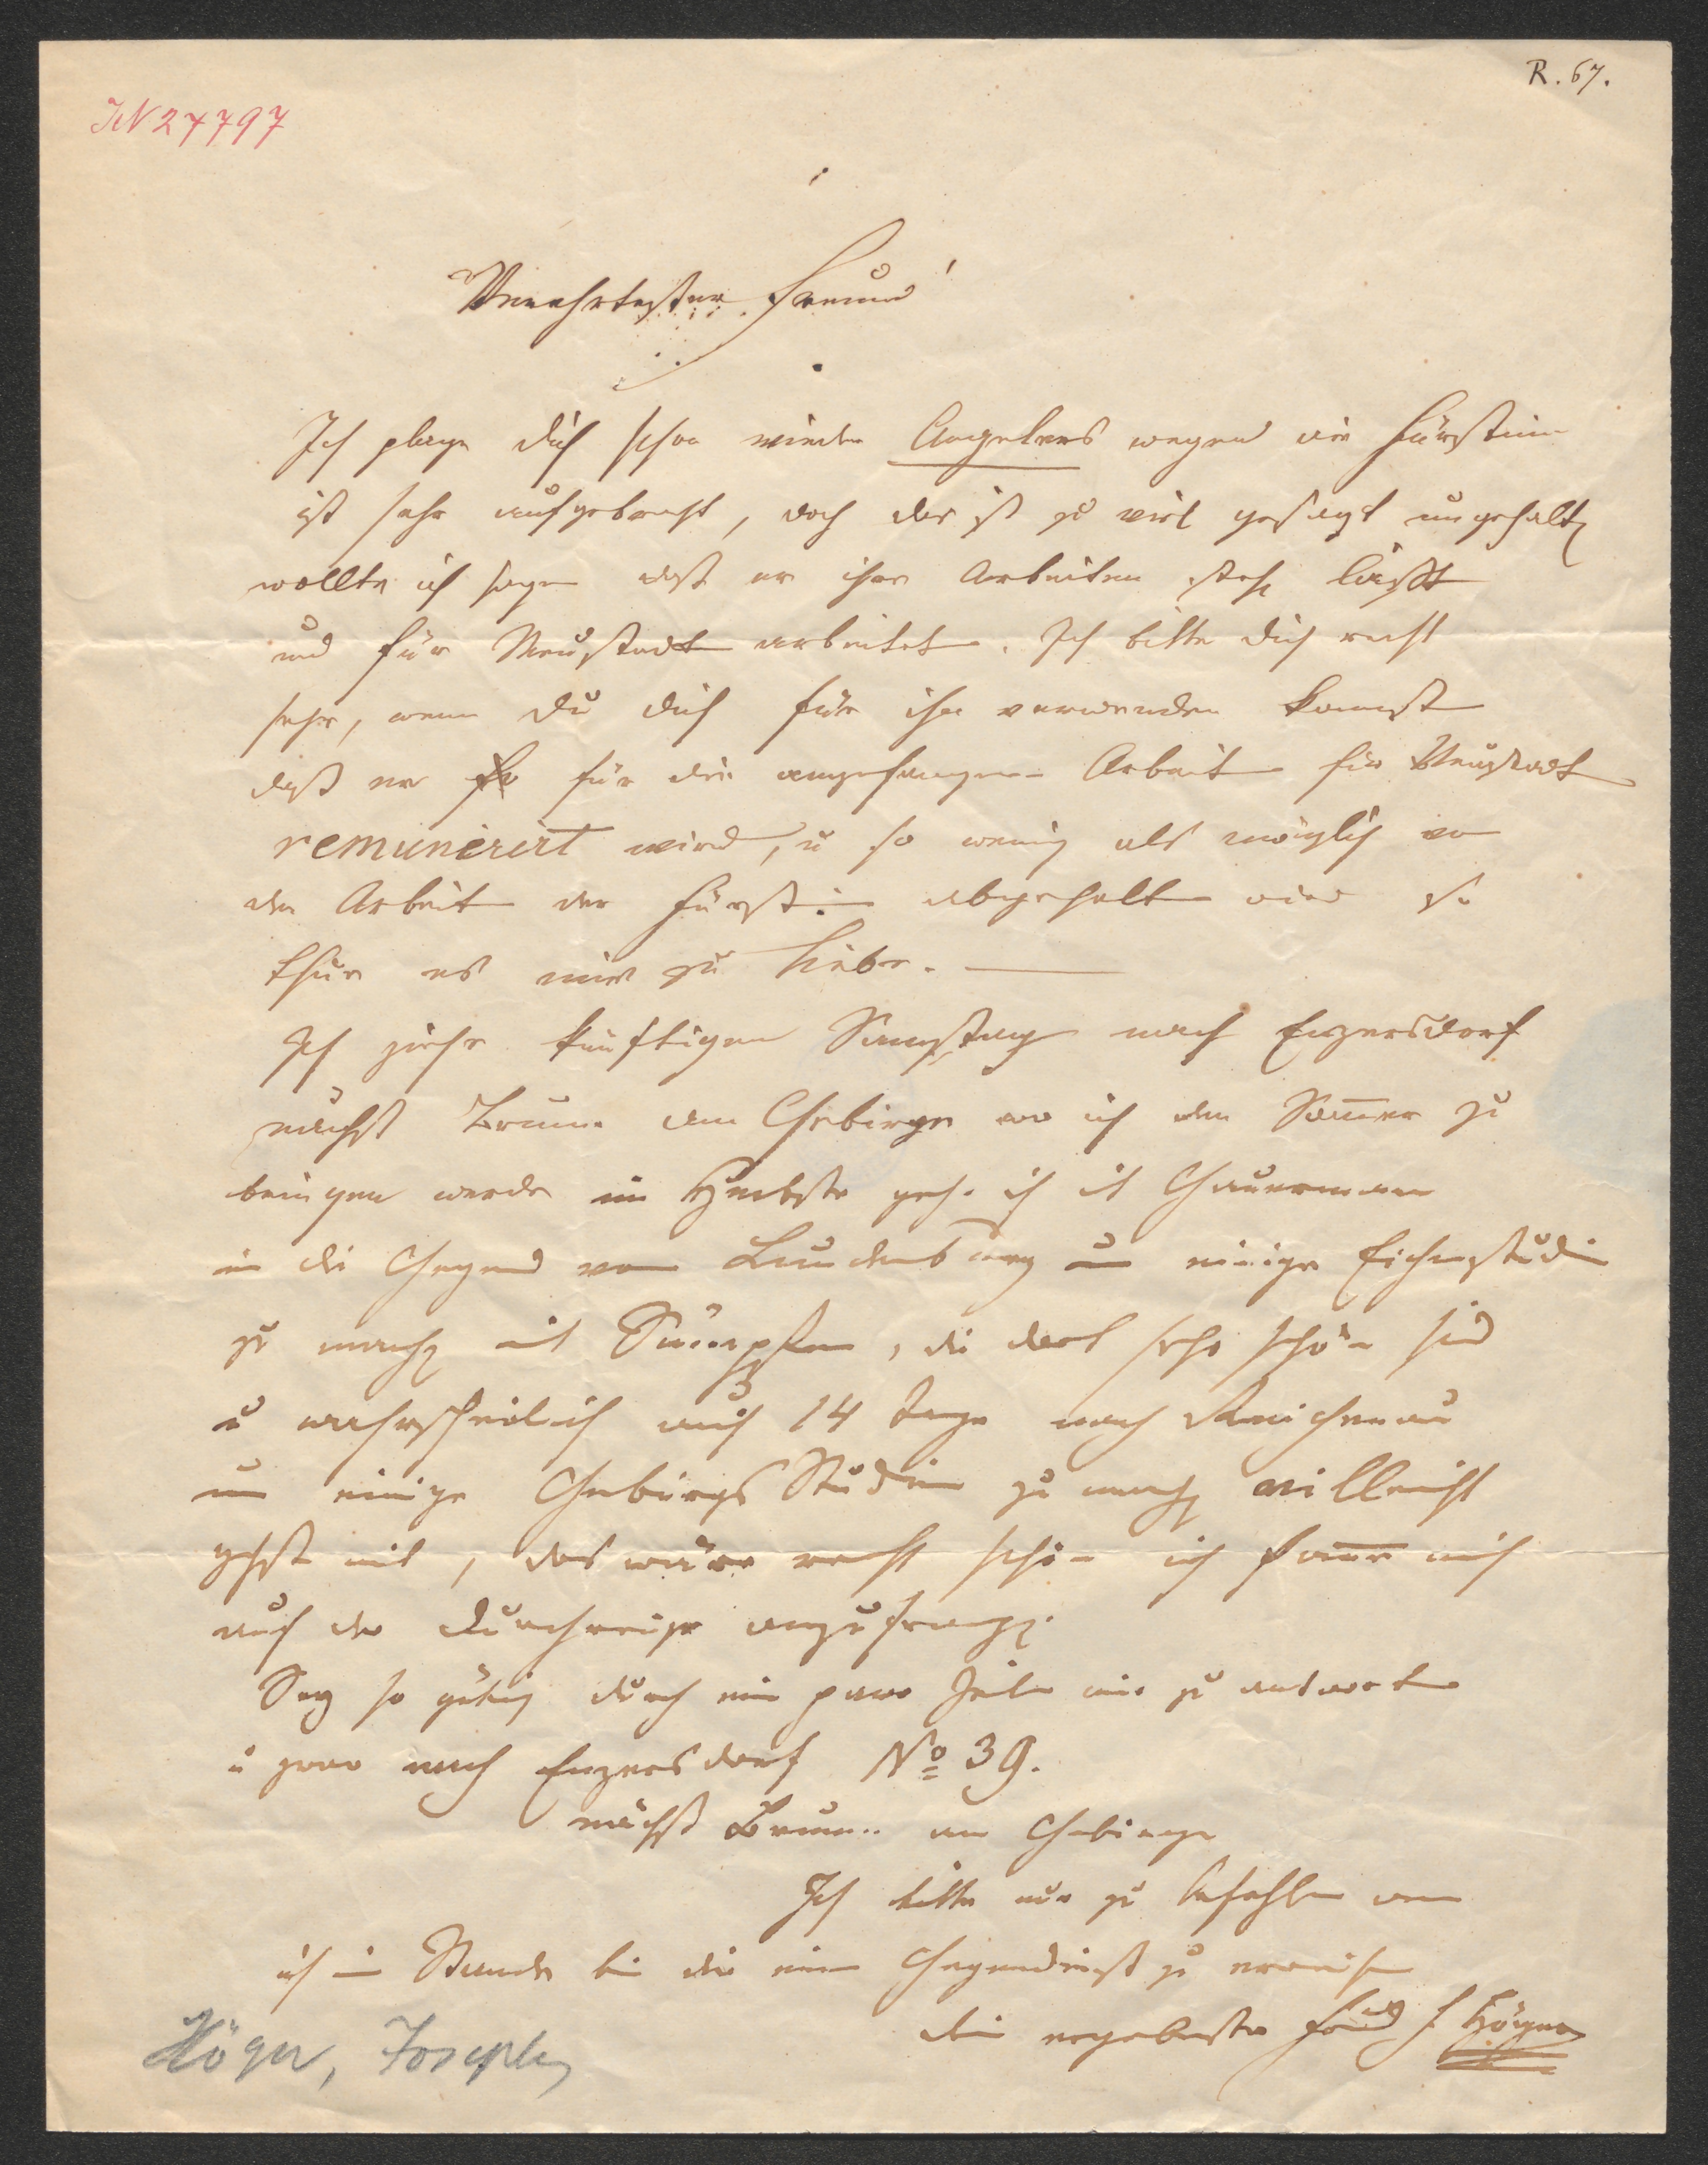 R. 67.
IN 27797
Verehrtester Freund!
Ich plage dich schon wieder Angelers wegen die Fürstinn
ist sehr aufgebracht, doch das ist zu viel gesagt ungehalten
wollte ich sagen daß er ihre Arbeiten stehen läßt
und für Neustadt arbeitet. Ich bitte dich recht
sehr, wenn du dich für ihn verwenden kannst
daß er für die angefangene Arbeit für Neustadt
remunerirt wird, u so wenig als möglich von
der Arbeit der Fürstin abgehalten wird
thue es mir zu Liebe.
Ich ziehe künftigen Samstag nach Enzersdorf
nächst Brunn am Gebirge wo ich den Som̅er zu
bringen werde im Herbste gehe ich mit Gauermann
in die Gegend von Lundenburg um einige Eichenstudien
zu machen mit Sümpfen, die dort sehr schön sind
u wahrscheinlich auch 14 Tage nach Reichenau
um einige Gebirgs Studien zu machen villeicht
gehst mit, das wäre recht schön ich kom̅e mich
auf der Durchreise anzufragen.
Sey so gütig durch ein paar Zeilen mir zu antworten
u zwar nach Enzersdorf No 39.
nächst Brunn am Gebirge
Ich bitte nur zu befehlen wenn
ich im Stande bin dir einen Gegendienst zu erweisen
dein ergebenster Freund J Höger
Höger, Joseph